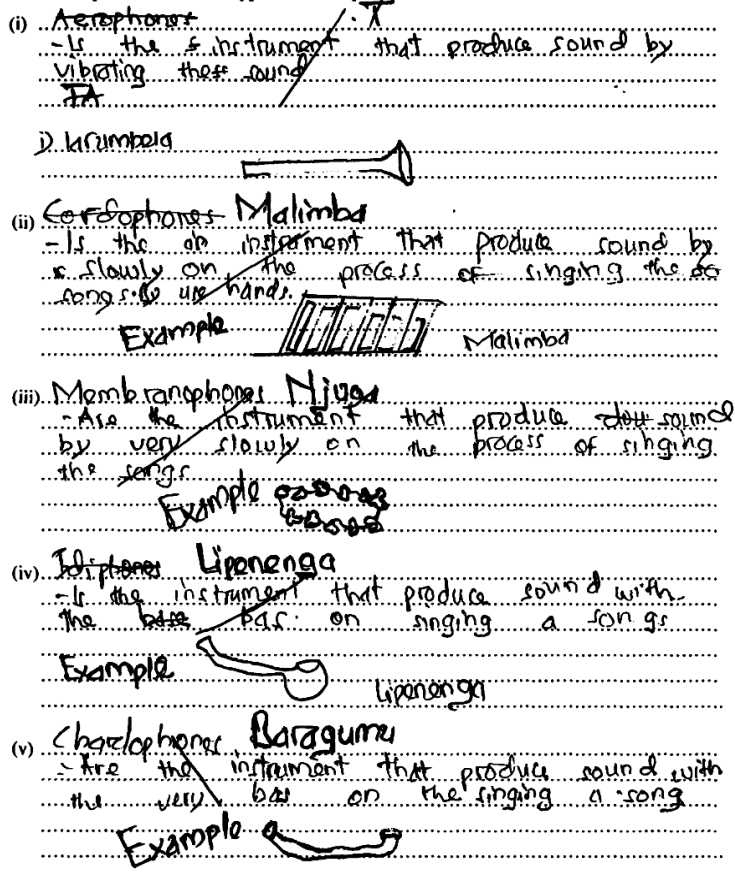 (i) Aerophones
- Is the instrument that produce sound by
vibrating the sound
i) Urumbela
(ii) Cordophones Malimba
- Is the an instrument that produce sound by
slowly on the process of singing the
songs. use hands.
Example
Malimba
(iii) Membranophones Njuga
- Are the instrument that produce sound
by very slowly on the process of singing
the songs
Example
(iv) Idiphones Lipenenga
- Is the instrument that produce sound with
the base bas on singing a songs
Example
Lipenenga
(v) Chordophones Baragumu
- Are the instrument that produce sound with
the very bas on the singing a song
Example